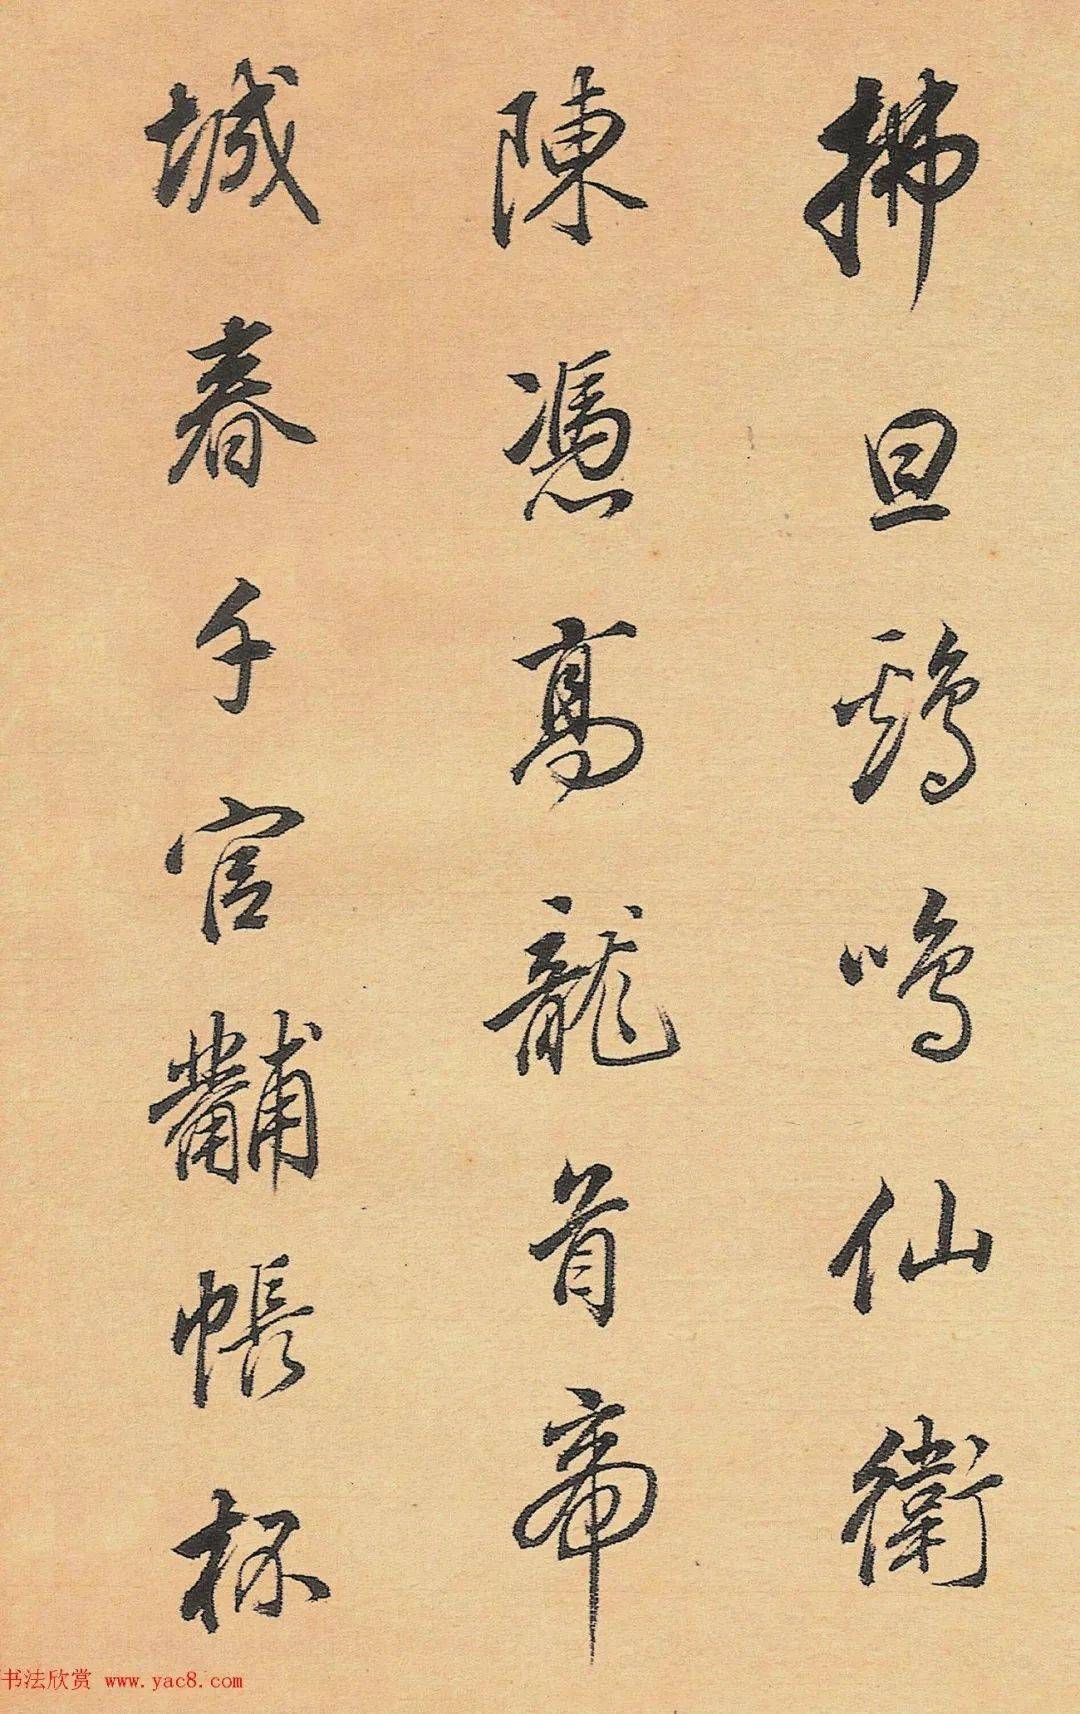 拂旦鷄鳴仙衛
陳憑高龍首帝
城春千官黼帳杯
书法欣赏 www.yac8.com